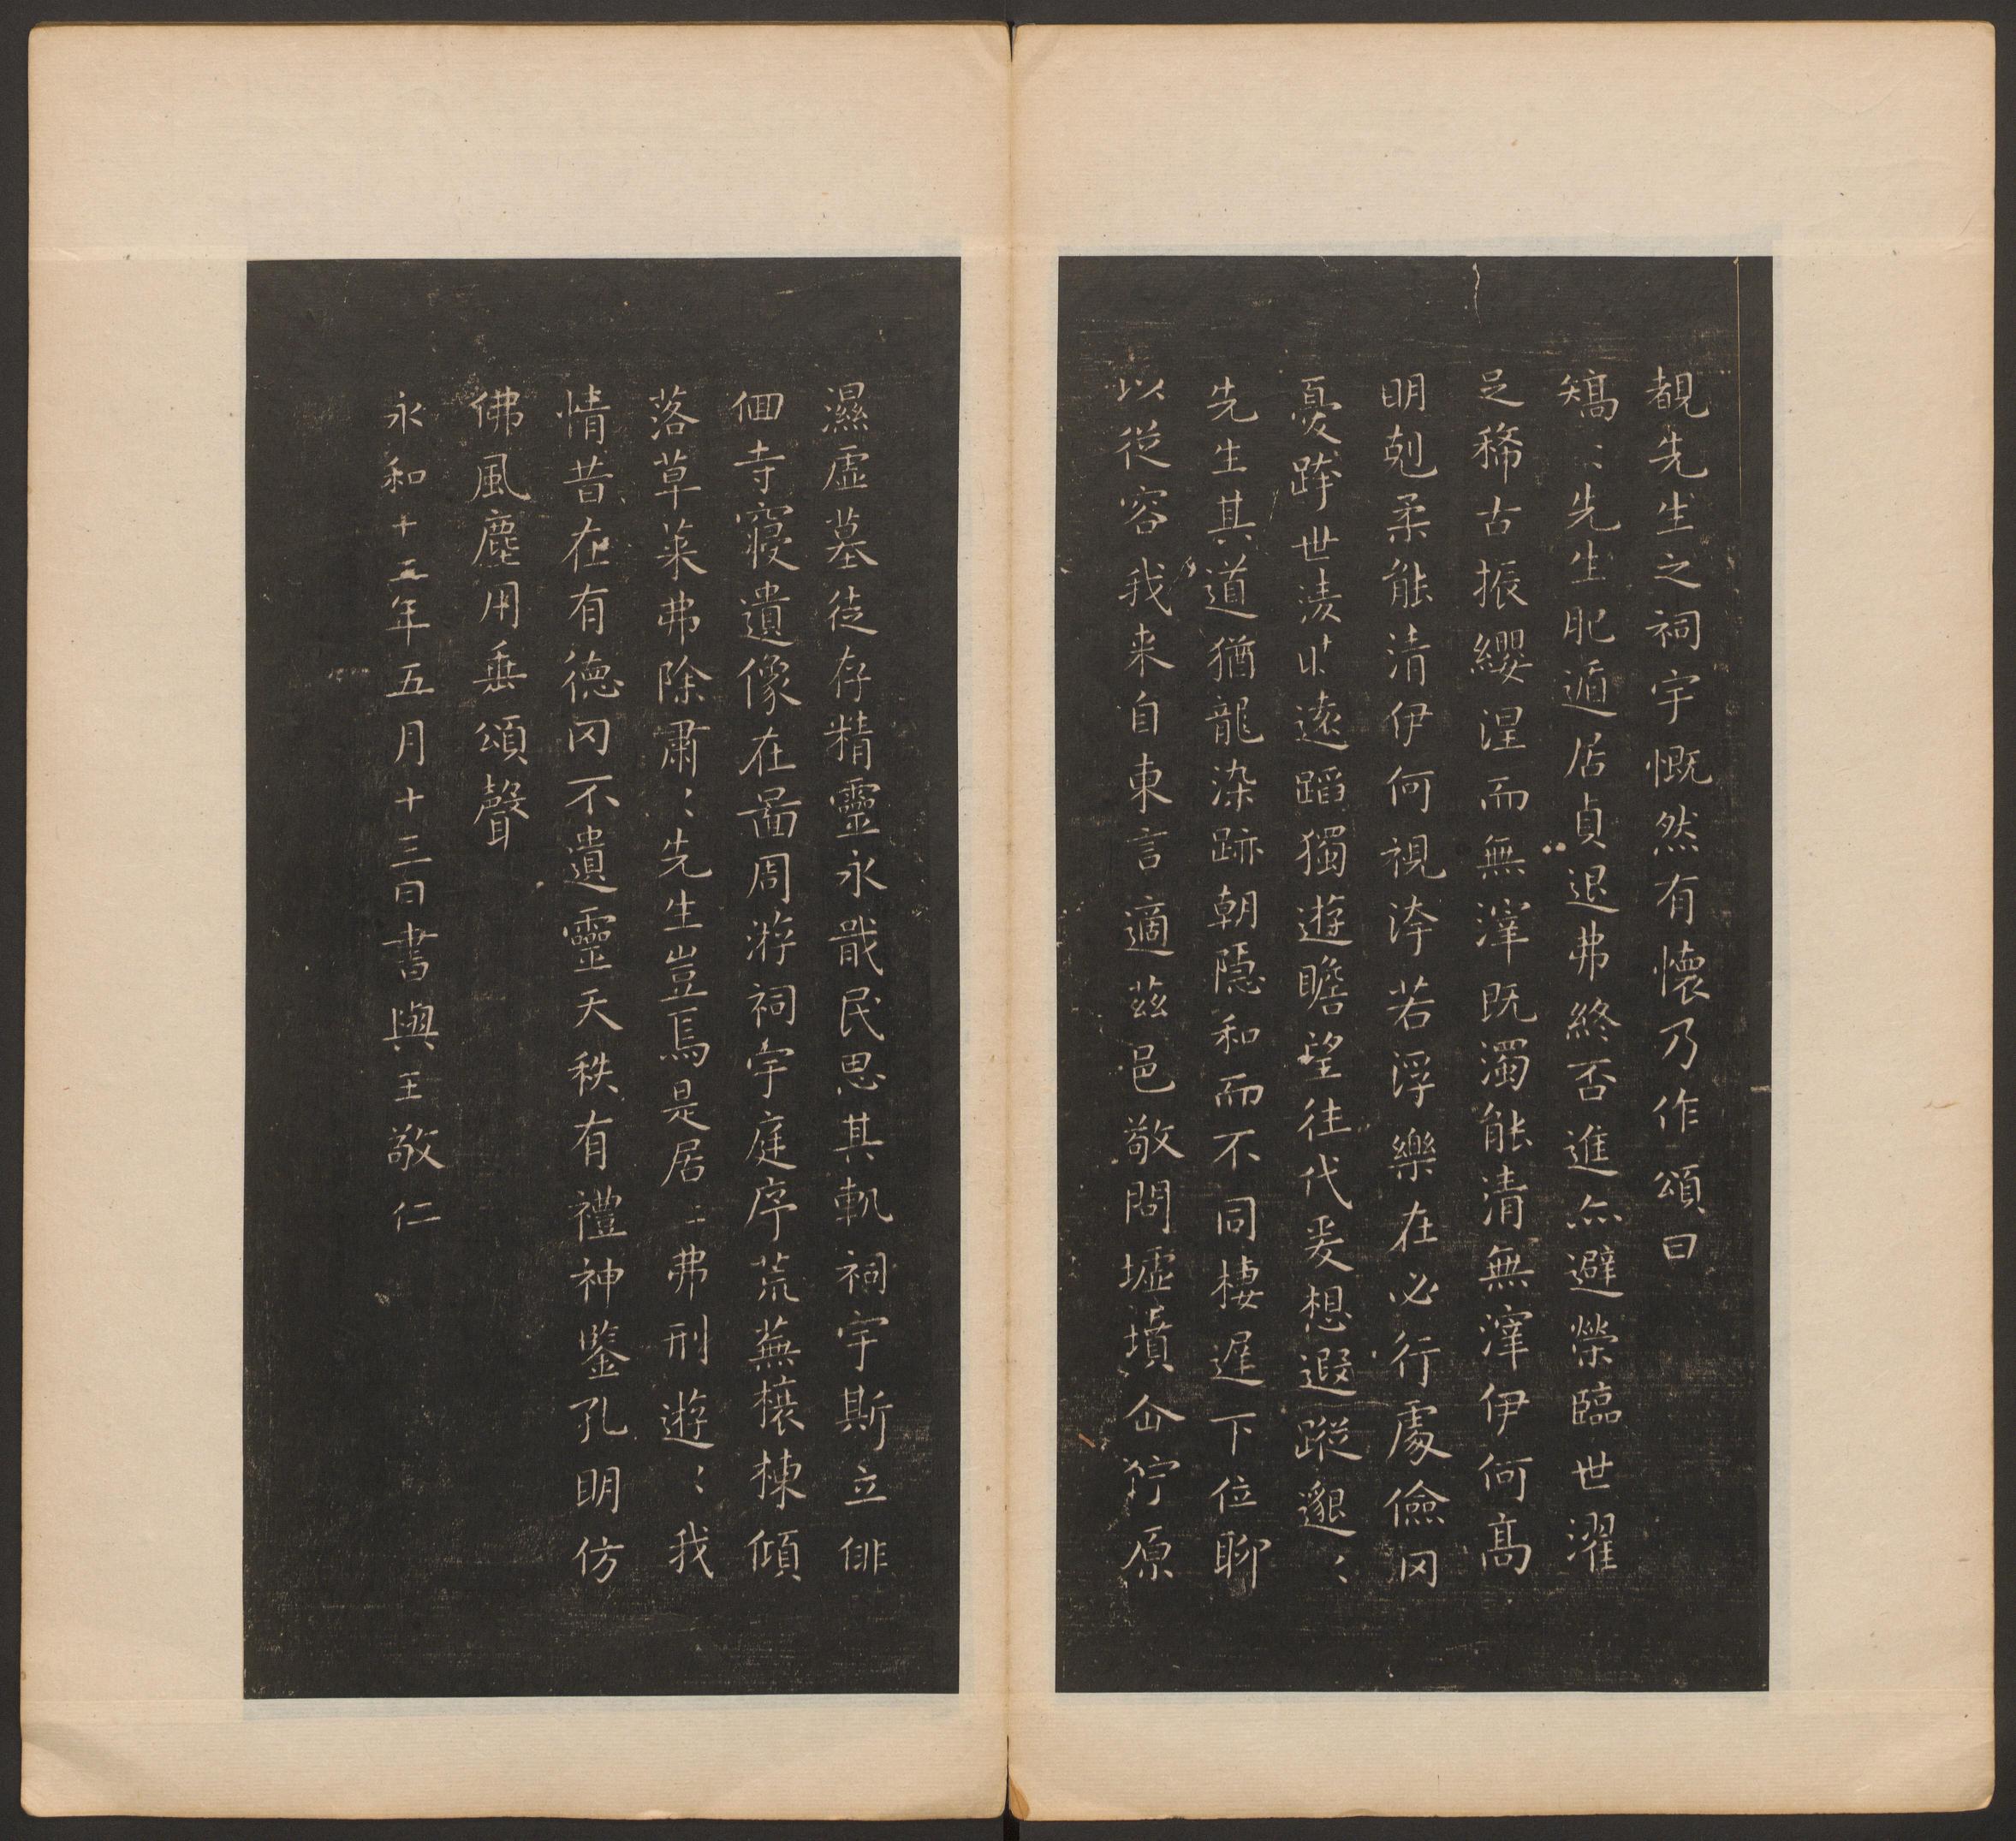 覩先生之祠宇慨然有懷乃作頌曰
矯〻先生肥遁居貞退弗終否進亦避榮臨世濯
足稀古振纓涅而無滓既濁能清無滓伊何高
明剋柔能清伊何視汙若浮樂在必行處儉罔
憂跨世淩時遠蹈獨遊瞻望往代爰想遐蹤邈〻
先生其道猶龍染跡朝隱和而不同棲遲下位聊
以從容我来自東言適茲邑敬問墟墳企佇原
濕虛墓徒存精靈永戢民思其軌祠宇斯立俳
佪寺寑遺像在啚周游祠宇庭序荒蕪榱棟傾
落草莱弗除肅〻先生豈焉是居〻弗刑遊〻我
情昔在有德罔不遺靈天秩有禮神鑒孔明仿
佛風塵用垂頌聲
永和十二年五月十三日書與王敬仁